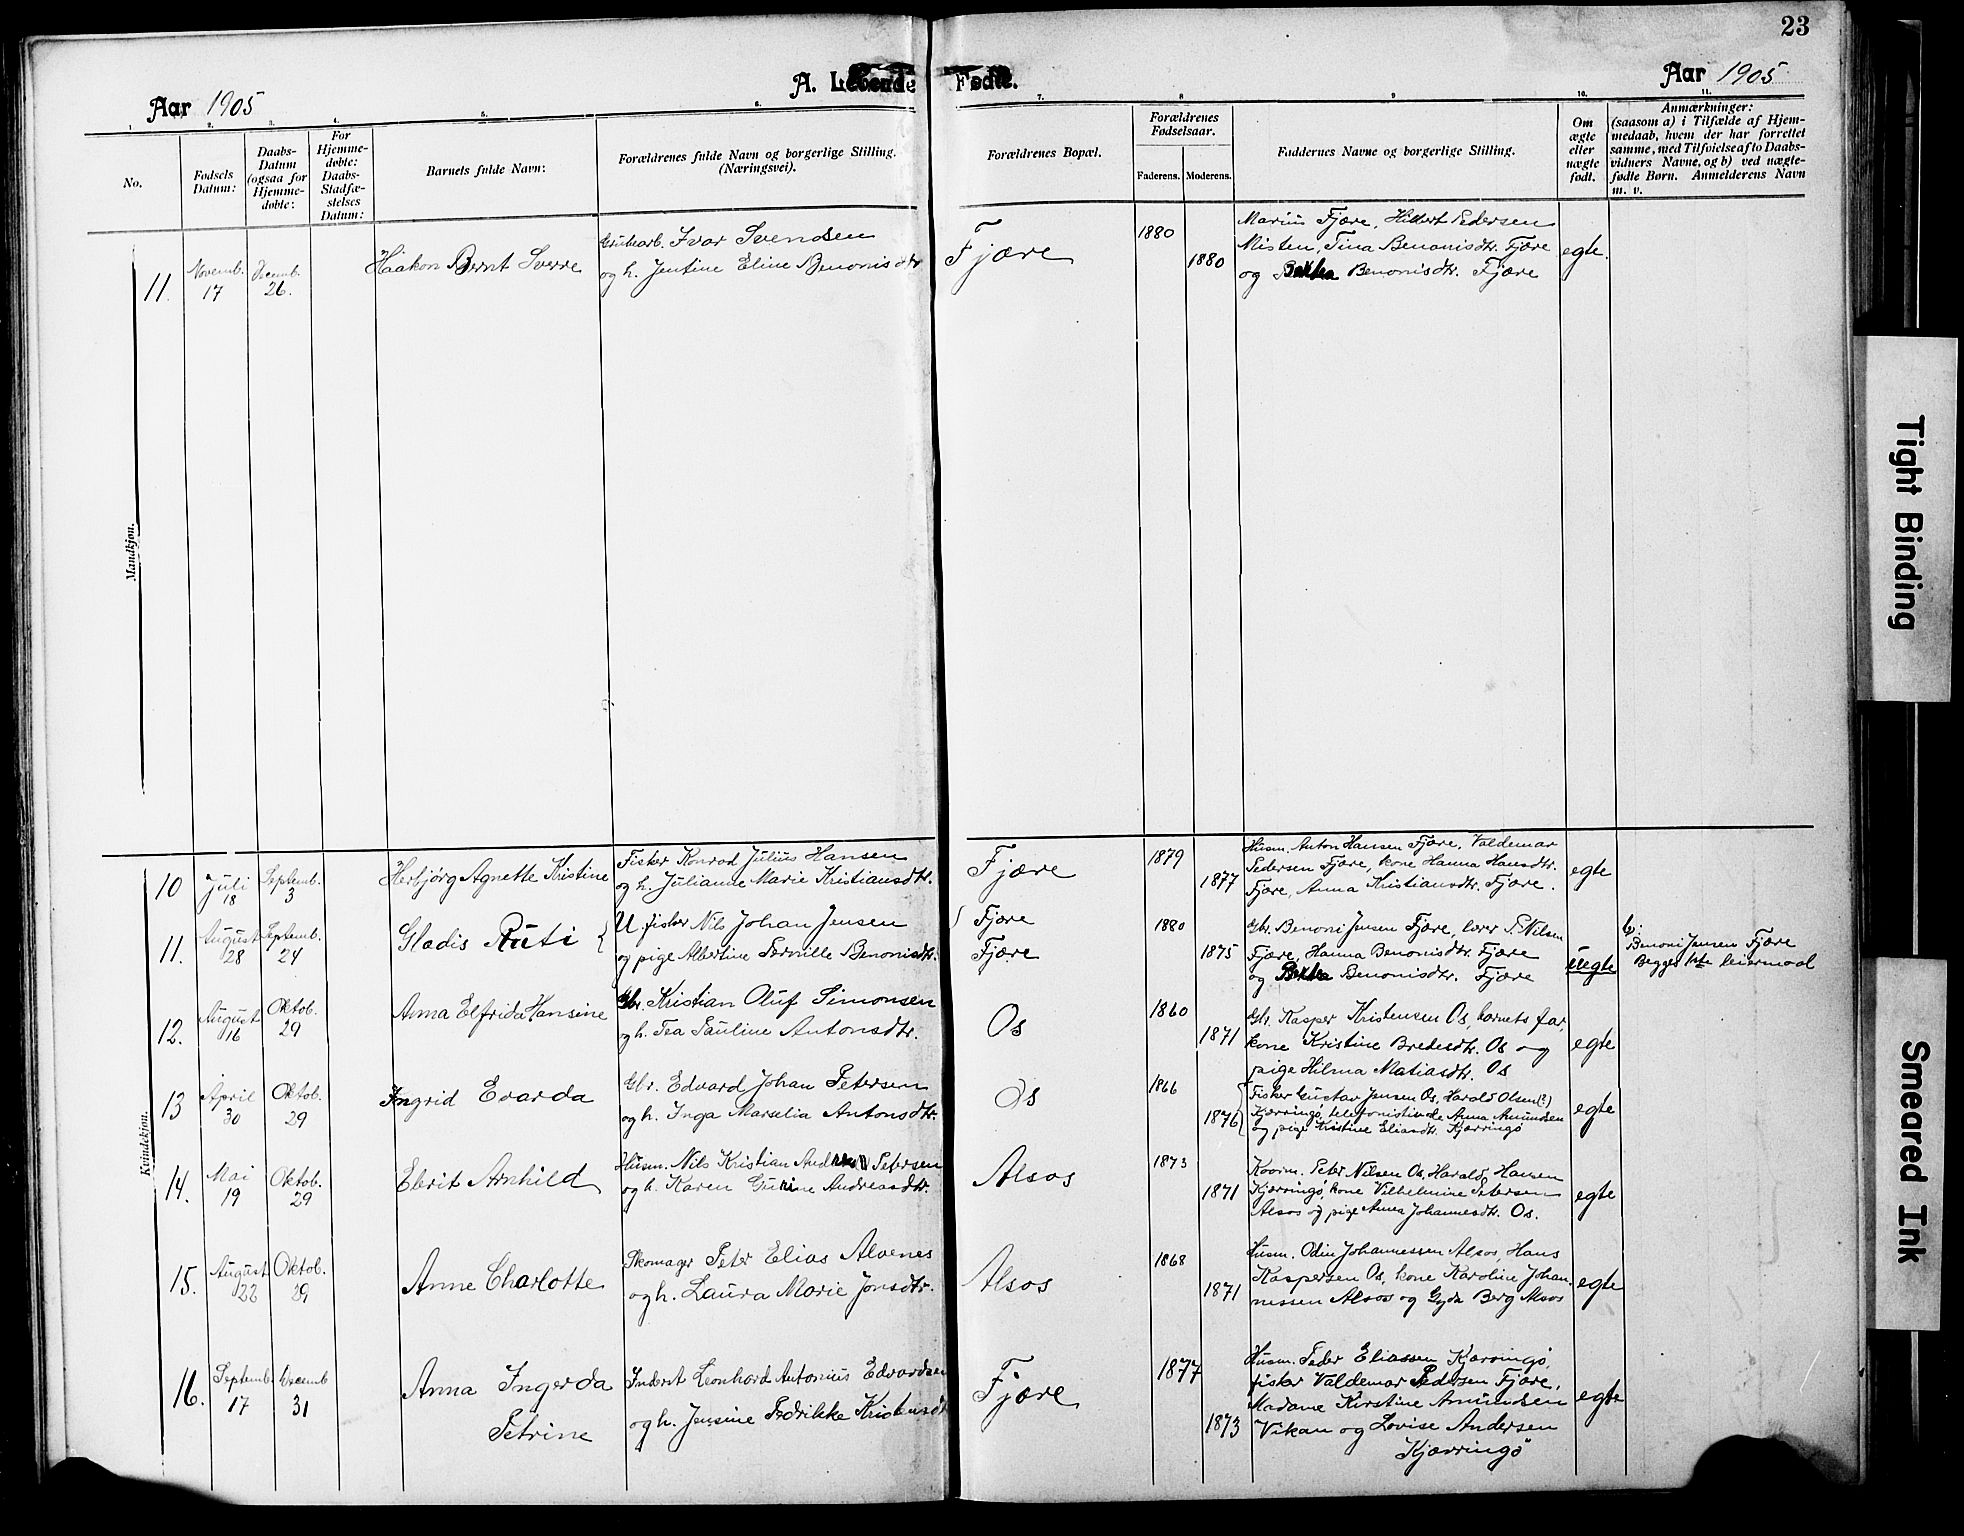 23
Aar 1905
A. Levende Fødte.
Aar 1905
1.
2.
3.
4.
5.
6.
7.
8
9
10.
11.
No.
Fødsels
Datum:
Daabs-
Datum
(ogsaa for
Hjemme-
døbte:
For
Hjemme-
døbte:
Daabs-
Stadfæ-
stelses
Datum:
Barnets fulde Navn:
Forældrenes fulde Navn og borgerlige Stilling.
(Næringsvei).
Forældrenes Bopæl.
Forældrenes
Fødselsaar.
Faderens.
Moderens.
Faddernes Navne og borgerlige Stilling.
Om
ægte
eller
uægte
født.
Anmærkninger:
(saasom a) i Tilfælde af Hjem-
medaab, hvem der har forrettet
samme, med Tilføielse af to Daabs-
vidners Navne, og b) ved uægte-
fødte Børn. Anmelderens Navn
m. v.
Mandkjøn.
11.
Novemb.
17
Decemb.
26.
Haakon Bernt Sverre
Grubearb. Ivar Svendsen
og h. Jentine Eline Benonisdtr
Fjære
1880
1880
Marius Fjære, Hilbert Pedersen
Misten, Tina Benonisdtr. Fjære
og Benonisdtr. Fjære
egte.
Kvindekjøn.
10
Juli
18
Septemb.
3
Herbjørg Agnette Kristine
Fisker Konrad Julius Hansen
og h. Julianne Marie Kristiansdtr.
Fjære
1879
1877
Husm. Anton Hansen Fjære, Valdemar
Pedersen Fjære, kone Hanna Hansdtr.
Fjære, Anna Kristiansdtr. Fjære.
egte
11.
August
28
Septemb.
24
Gladis Ruti
U. fisker Nils Johan Jensen
og pige Albertine Pernille Benonisdtr.
Fjære
Fjære
1880
1875
Gbr. Benoni Jensen Fjære, lærer P. Nilsen
Fjære, Hanna Benonisdtr. Fjære
og Benonisdtr. Fjære
uegte
b:
Benoni Jensen Fjære
Begges 1ste leiermaal
12.
August
16
Oktob.
29
Anna Elfrida Hansine
Gbr. Kristian Oluf Simonsen
og h. Tea Pauline Antonsdtr.
Os
1860
1871
Gbr. Kasper Kristensen Os, barnets far,
kone Kristine Bredesdtr. Os og
pige Hilma Matiasdtr. Os
egte
13
April
30
Oktob.
29
Ingrid Evarda
Gbr. Edvard Johan Petersen
og h. Inga Marselia Antonsdtr.
Os
1866
1876
Fisker Gustav Jensen Os, Harald Olsen(?)
Kjærringø, telefonistinde Anna Amundsen
og pige Kristine Eliasdtr. Kjærringø
egte
14.
Mai
19
Oktob.
29
Elerit Arnhild
Husm. Nils Kristian Petersen
og h. Karen Gurine Andreasdtr.
Alsos
1873
1871
Peter Nilsen Os, Harald Hansen
Kjærringø, kone Vilhelmine Petersen
Alsos og pige Anna Johannesdtr. Os.
egte
15.
August
22
Oktob.
29
Anne Charlotte
Skomager Peter Elias Alvenes
og h. Laura Marie Jonsdtr.
Alsos
1868
1871
Husm. Odin Johannessen Alsos, Hans
Kaspersen Os, kone Karoline Johan-
nessen Alsos og Gyda Berg Alsos
egte
16.
Septemb.
17
Decemb
31
Anna Ingerda
Petrine
Inderst Leonhard Antonius Edvardsen
og h. Jensine Fredrikke Kristensdt
Fjære
1877
1873
Husm. Peder Eliassen Kjærringø,
fisker Valdemar Pedersen Fjære,
Madame Kirstine Amundsen
Vikan og Lovise Andersen
Kjærringø
egte
Tight Binding
Smeared Ink